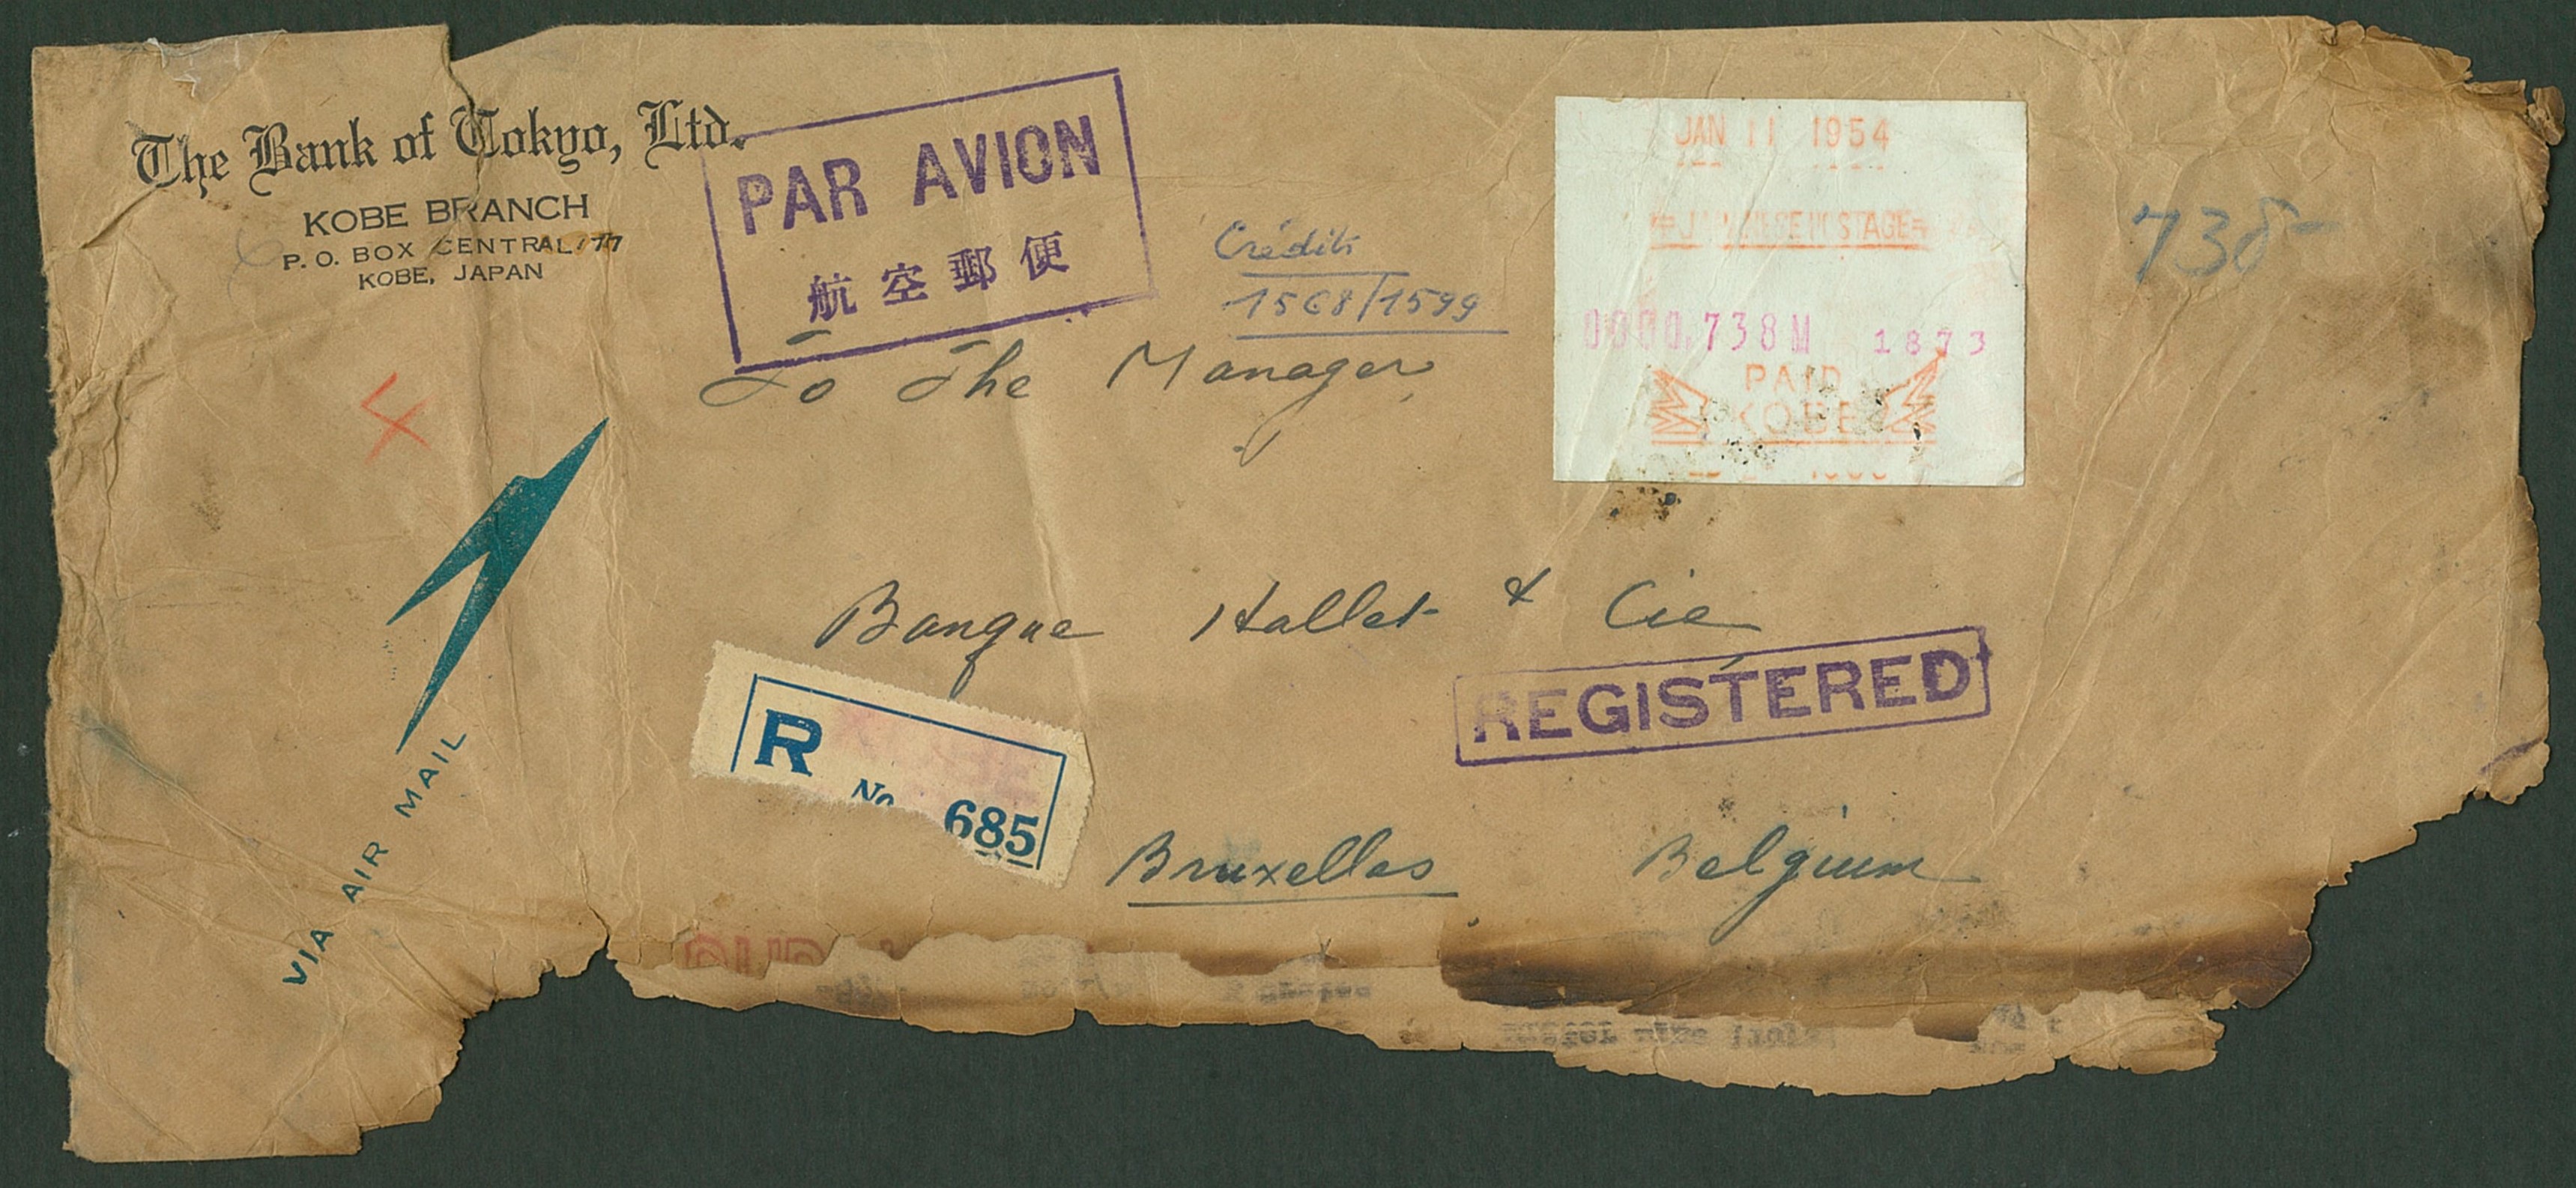 The Bank of Tokyo, Ltd.
KOBE BRANCH
P. O. BOX CENTRAL 177
KOBE, JAPAN
PAR AVION
航空郵便
Crédits
1568/1599
JAN 11 1954
JAPANESE POSTAGE
0000.738M 1873
PAID
KOBE
738-
To The Manager,
4
Banque Hallet & Cie
REGISTERED
R
No 685
Bruxelles Belgium
VIA AIR MAIL